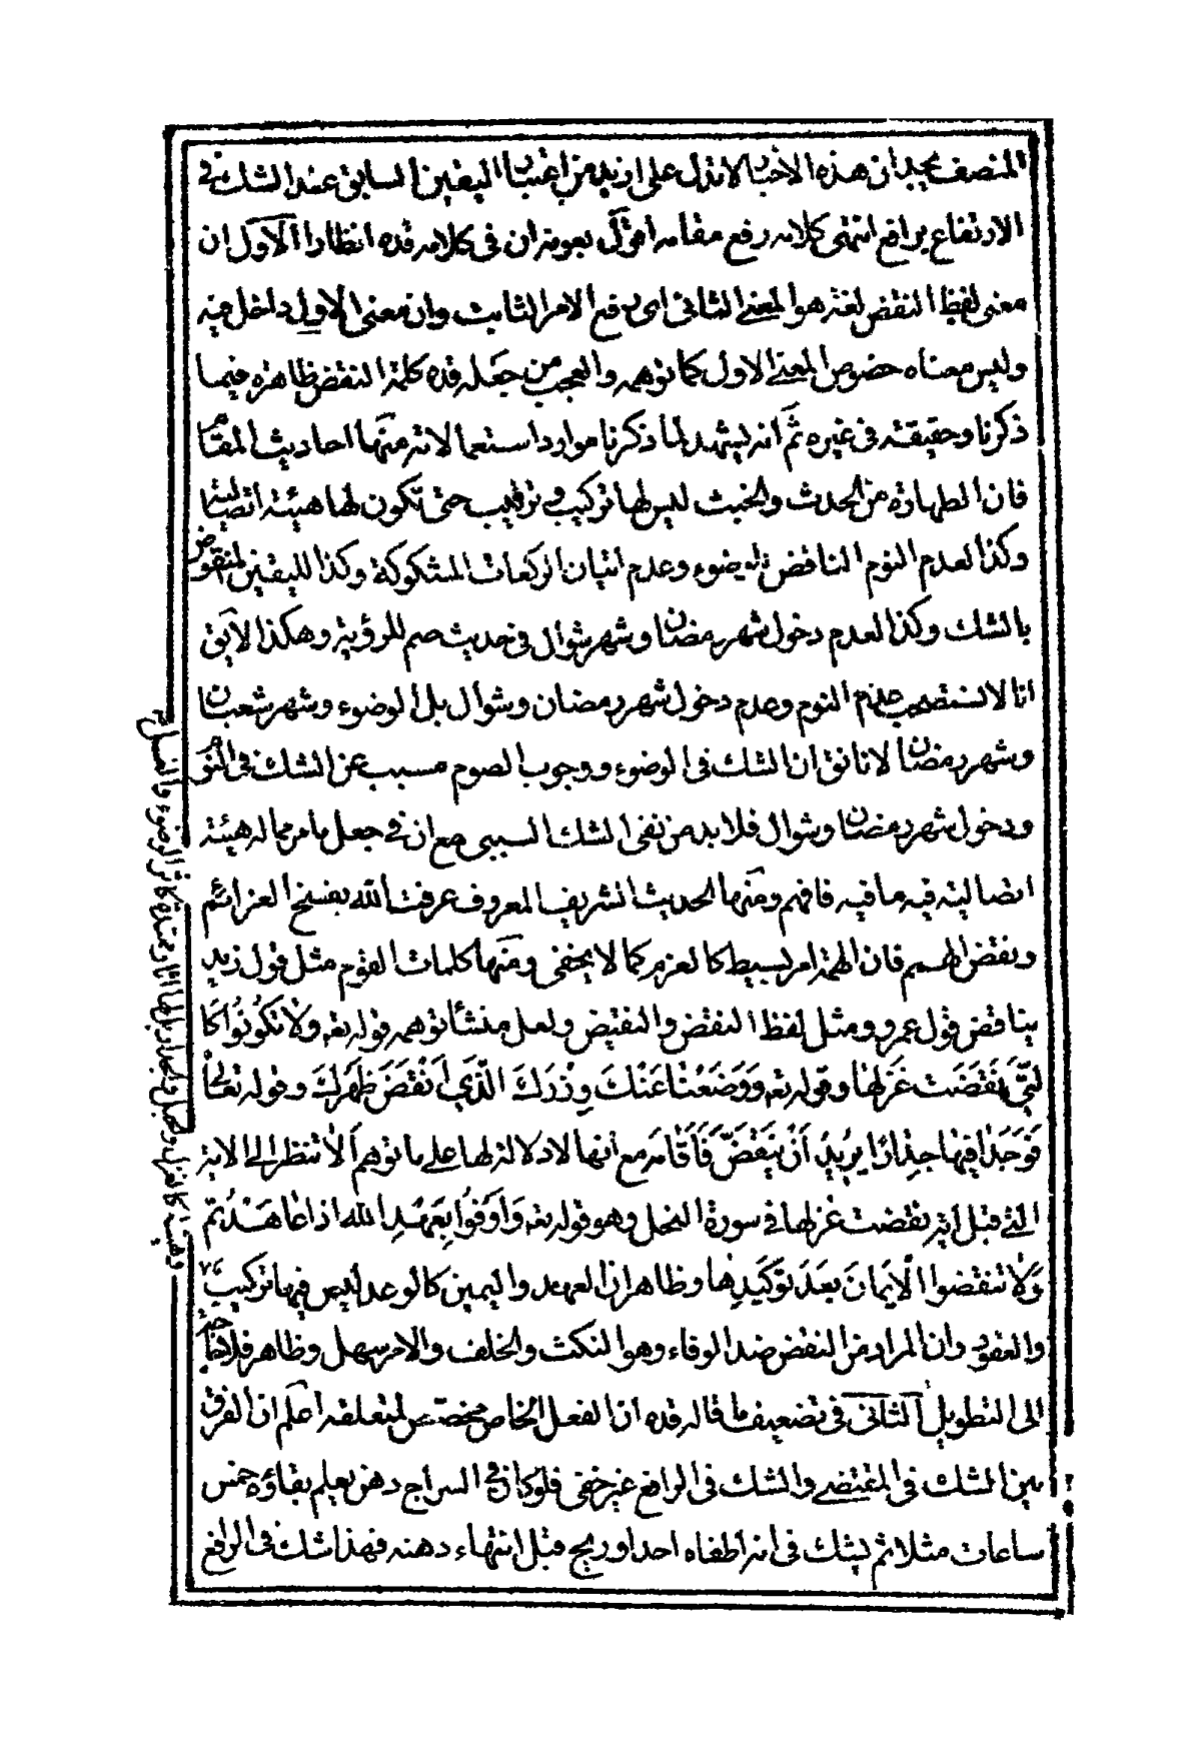 المنصف يجد ان هذه الاخبار لا تدل على ازيد من اعتبار اليقين السابق عند الشك في
الارتفاع برافع انتهى كلامه رفع مقامه اقول بعونه ان في كلامه قده انظارا الاول ان
معنى لفظ النقض لغة هو المعنى الثانى اى رفع الامر الثابت وان معنى الاول داخل فيه
وليس معناه خصوص المعنى الاول كما توهمه والعجب من جعله قده كلمة النقض ظاهرة فيما
ذكرنا وحقيقته فى غيره ثم انه ليشهد لما ذكرنا موارد استعمالاته منها احاديث المقام
فان الطهارة من الحدث والخبث ليس لها تركيب وترتيب حتى تكون لها هيئة اتصالية
وكذا لعدم النوم الناقض للوضوء وعدم اتيان الركعات المشكوكة وكذا لليقين المنقوض
بالشك وكذا لعدم دخول شهر رمضان وشهر شوال فى حديث صم للرؤية وهكذا لا يق
انا لا نستصحب عدم النوم وعدم دخول شهر رمضان وشوال بل الوضوء وشهر شعبان
وشهر رمضان لانا نق ان الشك فى الوضوء ووجوب الصوم مسبب عن الشك فى النوم
ودخول شهر رمضان وشوال فلا بد من نفى الشك السببى مع ان فى جعل ما مر مما له هيئة
اتصالية فيه ما فيه فافهم ومنها الحديث الشريف المعروف عرفت الله بفسخ العزائم
ونقض الهمم فان الهمة امر بسيط كالعزم كما لا يخفى ومنها كلمات القوم مثل قول زيد
يناقض قول عمرو ومثل لفظ النقض والنقيض ولعل منشأ توهمه قوله تعه وَلاٰ تَكُونُوا كَا
لَّتى نَقَضَت غَزلَها وقوله تعه وَوَضَعْنٰا عَنْكَ وِزْرَكَ الَّذي أَنْقَضَ ظَهْرَكَ وقوله تعالى
فَوَجَدٰا فيٖهٰا جِدٰارًا يُريٖدُ اَنْ يَنْقَضَّ فَاَقٰامَهُ مع انها لا دلالة لها على ما توهم اَلاٰ تنظر الى الاية
التى قبل اية نقضت غزلها فى سورة النحل وهو قوله تعه وَاَوفُوا بِعَهْدِ الله اذا عٰاهَدْتُم
وَلاٰ تنقضوا الْاَيمٰانَ بَعدَ تَوكيدِهٰا وظاهر ان العهد واليمين كالوعد ليس فيها تركيب
والعقود وان المراد من النقض ضد الوفاء وهو النكث والخلف والامر سهل وظاهر فلا حاجة
الى التطويل الثانى فى تضعيف ما قاله قده ان الفعل الخاص مخصص لمتعلقه اعلم ان الفرق
بين الشك فى المقتضى والشك فى الرافع غير خفى فلو كان فى السراج دهن يعلم بقاؤه خمس
ساعات مثلا ثم يشك فى انه اطفاه احد او ريح قبل انتهاء دهنه فهذا شك فى الرافع